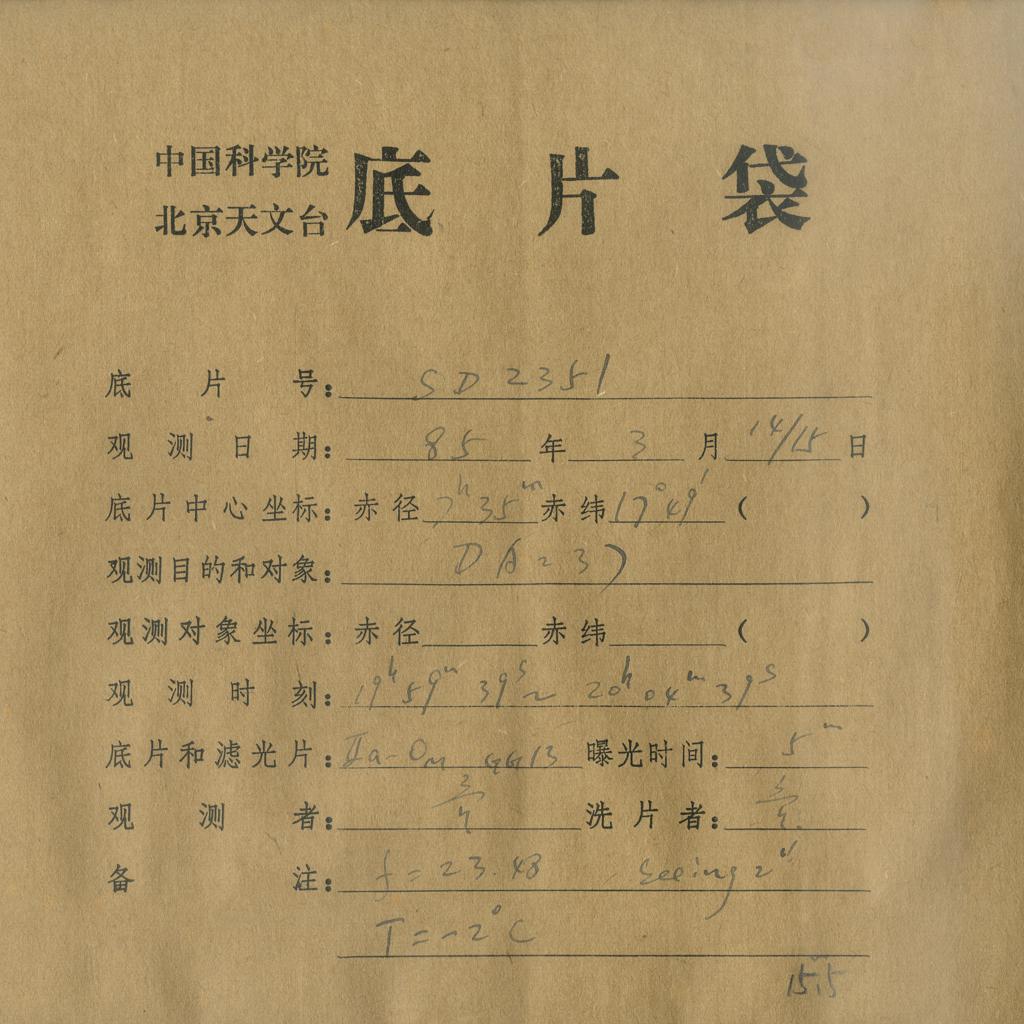 中国科学院
北京天文台 底片袋
底片号: SD 2351
观测日期: 85 年 3 月 14/15 日
底片中心坐标: 赤径 7ʰ35ᵐ 赤纬 17°49′ ( )
观测目的和对象:
观测对象坐标: 赤径 赤纬 ( )
观测时刻: 19ʰ59ᵐ39ˢ~ 20ʰ04ᵐ39ˢ
底片和滤光片: IIa-O GG13 曝光时间: 5ᵐ
观测者: 洗片者:
备注: f=23.48 Seeing 2″
T=-2°C